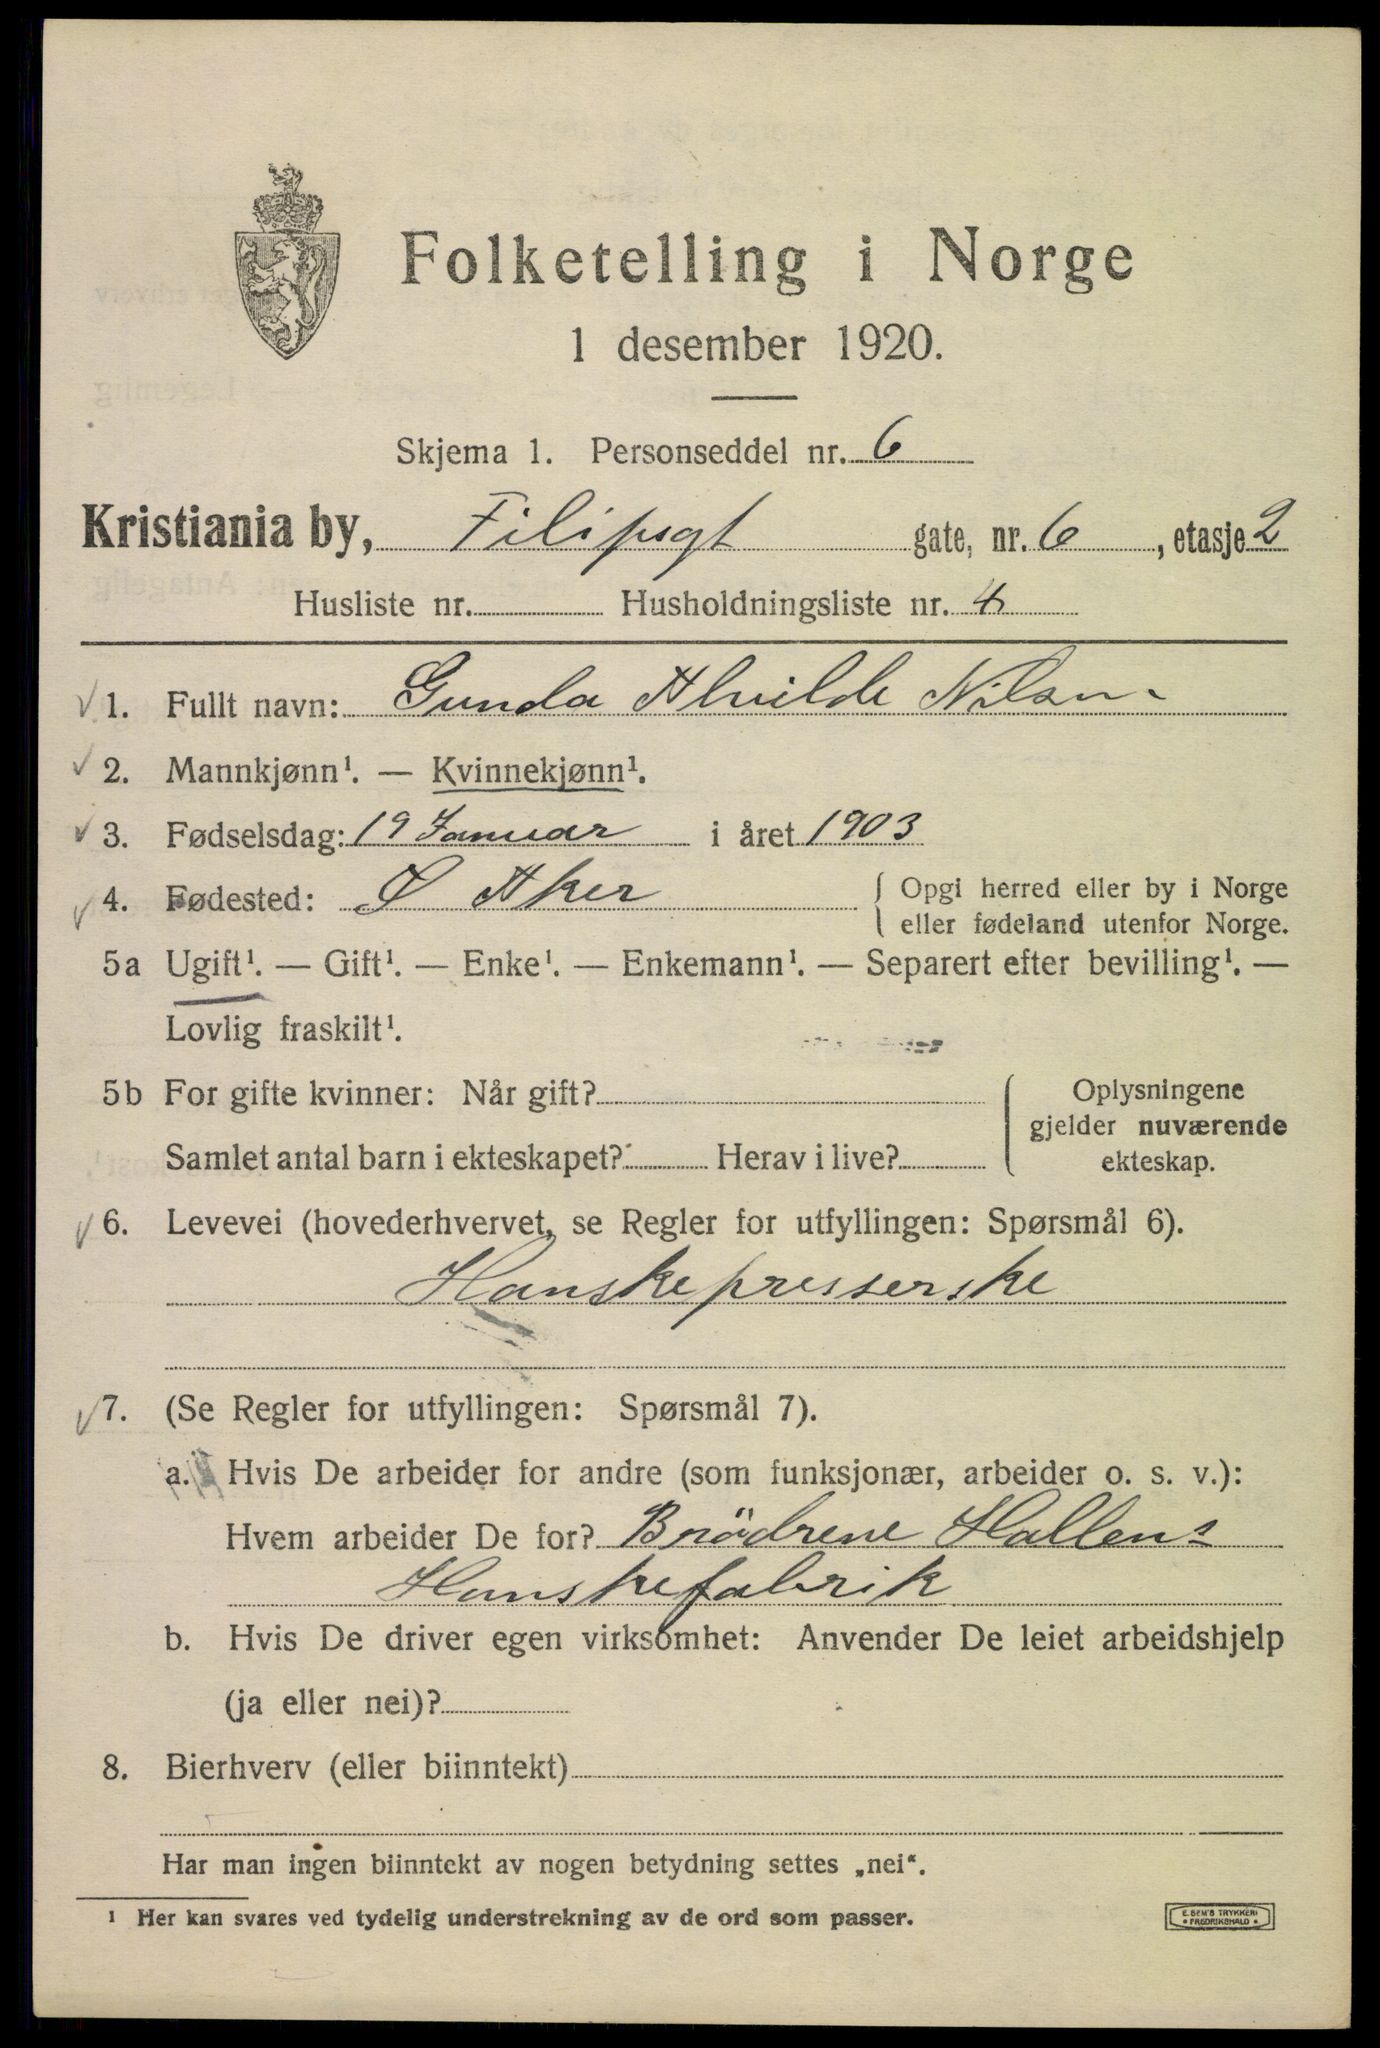 Folketelling i Norge
1 desember 1920.
Skjema 1. Personseddel nr. 6
Kristiania by, Filipsgt gate, nr. 6, etasje 2
Husliste nr. Husholdningsliste nr. 4
1. Fullt navn: Gunda Alvilde Nilsen
2. Mannkjønn¹. — Kvinnekjønn¹.
3. Fødselsdag: 19 Januar i året 1903
4. Fødested: Ø Aker { Opgi herred eller by i Norge
eller fødeland utenfor Norge.
5a Ugift¹. — Gift¹. — Enke¹. — Enkemann¹. — Separert efter bevilling¹. —
Lovlig fraskilt¹.
5b For gifte kvinner: Når gift?
Samlet antal barn i ekteskapet? Herav i live?
Oplysningene
gjelder nuværende
ekteskap.
6. Levevei (hovederhvervet, se Regler for utfyllingen: Spørsmål 6).
Hanskepresserske
7. (Se Regler for utfyllingen: Spørsmål 7).
a. Hvis De arbeider for andre (som funksjonær, arbeider o. s. v.):
Hvem arbeider De for? Brödrene Hallens
Hanskefabrik
b. Hvis De driver egen virksomhet: Anvender De leiet arbeidshjelp
(ja eller nei)?
8. Bierhverv (eller biinntekt)
Har man ingen biinntekt av nogen betydning settes „nei“.
¹ Her kan svares ved tydelig understrekning av de ord som passer.
E. SEM'S TRYKKERI
• FREDRIKSHALD •